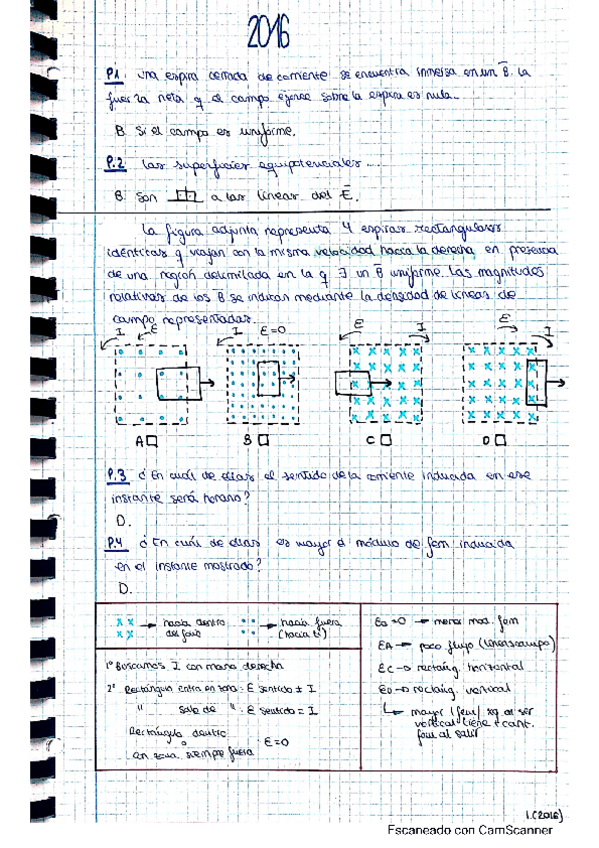 2016
P.1. Una espira cerrada de corriente se encuentra inmersa en un B. La
fuerza neta q el campo ejerce sobre la espira es nula...
B Si el campo es uniforme.
P.2 Las superficies equipotenciales...
B. Son a las líneas del E.
La figura adjunta representa 4 espiras rectangulares
idénticas q viajan con la misma velocidad hacia la derecha, en presencia
de una región delimitada en la q ∃ un B uniforme. Las magnitudes
relativas de los B se indican mediante la densidad de líneas de
campo representadas.
I E I E=0 E I E I
A B C D
P.3 ¿En cuál de ellas el sentido de la corriente inducida en ese
instante será horario?
D.
P.4 ¿En cuál de ellas es mayor el módulo de fem inducida
en el instante mostrado?
D.
x x → hacia dentro
x x del folio
→ hacia fuera
(hacia ti)
1º Buscamos I con mano derecha
2º Rectángulo entra en zona: E sentido ≠ I
" sale de " : E sentido = I
Rectángulo dentro
o
en zona siempre fuera
E=0
EB =0 → menor mod. fem
EA → poco flujo (líneas campo)
EC → rectáng. horizontal
ED → rectáng. vertical
↳ mayor |fem| xq al ser
vertical tiene + cant.
fem al salir
1.(2016)
Escaneado con CamScanner